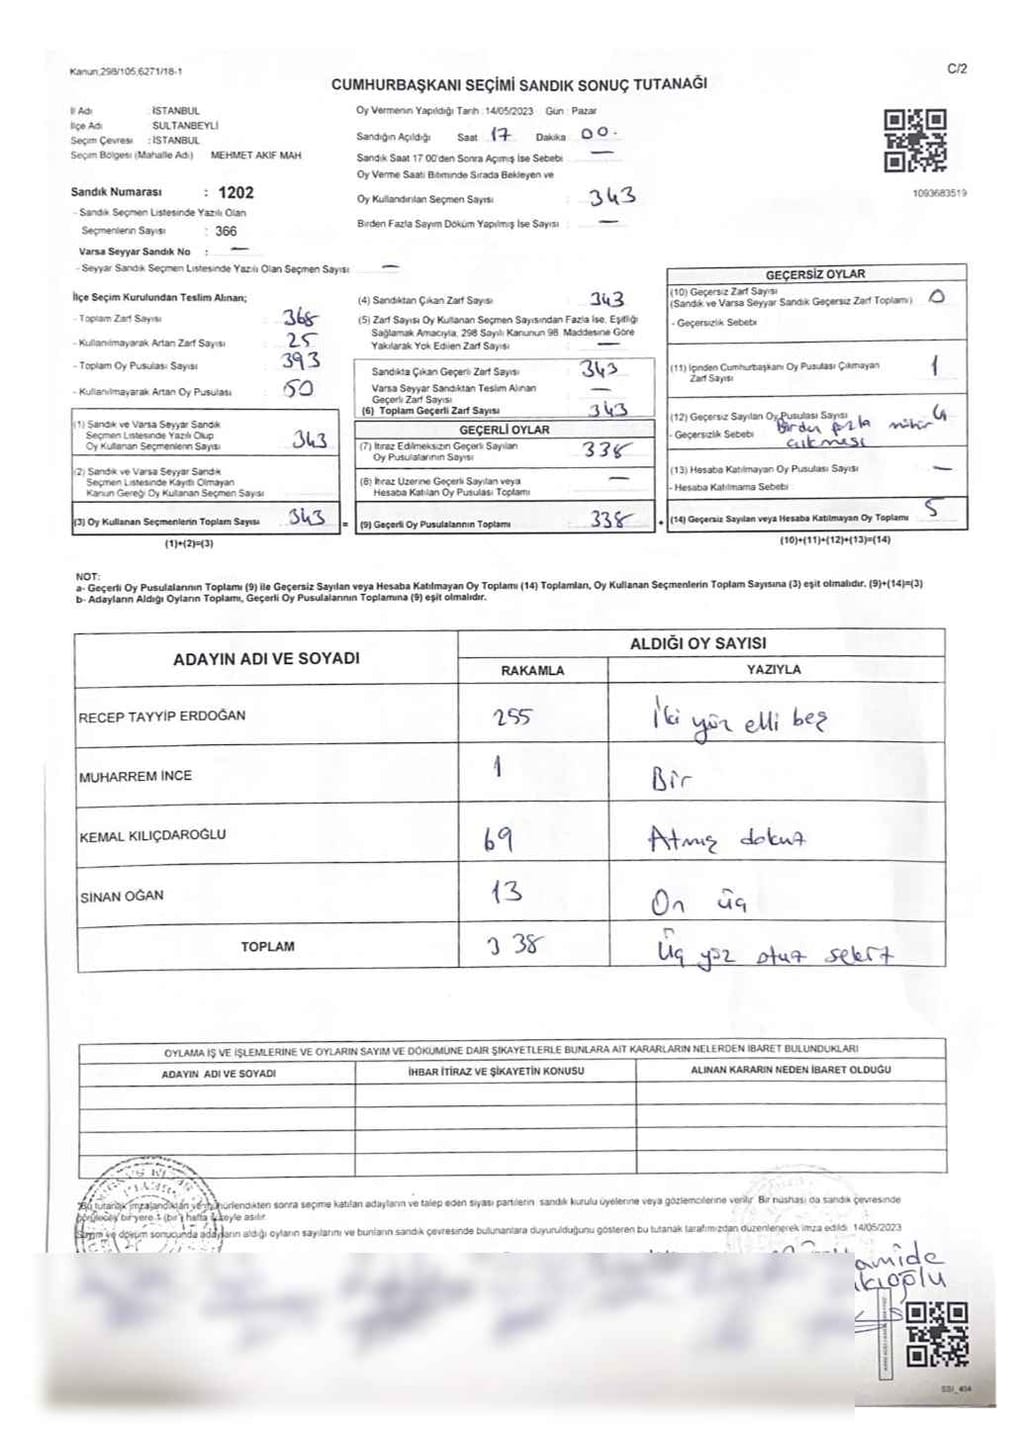 Kanun;298/105,6271/18-1
C/2
CUMHURBAŞKANI SEÇİMİ SANDIK SONUÇ TUTANAĞI
İl Adı : İSTANBUL
İlçe Adı : SULTANBEYLİ
Seçim Çevresi : İSTANBUL
Seçim Bölgesi (Mahalle Adı) MEHMET AKİF MAH
Sandık Numarası : 1202
- Sandık Seçmen Listesinde Yazılı Olan
Seçmenlerin Sayısı : 366
Varsa Seyyar Sandık No : —
- Seyyar Sandık Seçmen Listesinde Yazılı Olan Seçmen Sayısı : —
Oy Vermenin Yapıldığı Tarih :14/05/2023 Gün : Pazar
Sandığın Açıldığı Saat 17 Dakika 00.
Sandık Saat 17 00'den Sonra Açımış İse Sebebi : —
Oy Verme Saati Bitiminde Sırada Bekleyen ve
Oy Kullandırılan Seçmen Sayısı : 343
Birden Fazla Sayım Döküm Yapılmış İse Sayısı : —
1093683519
İlçe Seçim Kurulundan Teslim Alınan;
- Toplam Zarf Sayısı : 368
- Kullanılmayarak Artan Zarf Sayısı : 25
- Toplam Oy Pusulası Sayısı : 393
- Kullanılmayarak Artan Oy Pusulası : 50
(1) Sandık ve Varsa Seyyar Sandık
Seçmen Listesinde Yazılı Olup
Oy Kullanan Seçmenlerin Sayısı : 343
(2) Sandık ve Varsa Seyyar Sandık
Seçmen Listesinde Kayıtlı Olmayan
Kanun Gereği Oy Kullanan Seçmen Sayısı :
(3) Oy Kullanan Seçmenlerin Toplam Sayısı : 343 =
(1)+(2)=(3)
(4) Sandıktan Çıkan Zarf Sayısı : 343
(5) Zarf Sayısı Oy Kullanan Seçmen Sayısından Fazla İse, Eşitliği
Sağlamak Amacıyla, 298 Sayılı Kanunun 98. Maddesine Göre
Yakılarak Yok Edilen Zarf Sayısı : —
Sandıkta Çıkan Geçerli Zarf Sayısı : 343
Varsa Seyyar Sandıktan Teslim Alınan
Geçerli Zarf Sayısı : —
(6) Toplam Geçerli Zarf Sayısı : 343
GEÇERLİ OYLAR
(7) İtiraz Edilmeksizin Geçerli Sayılan
Oy Pusulalarının Sayısı : 338
(8) İtiraz Üzerine Geçerli Sayılan veya
Hesaba Katılan Oy Pusulası Toplamı : —
(9) Geçerli Oy Pusulalarının Toplamı : 338 +
GEÇERSİZ OYLAR
(10) Geçersiz Zarf Sayısı
(Sandık ve Varsa Seyyar Sandık Geçersiz Zarf Toplamı) : 0
- Geçersizlik Sebebi :
(11) İçinden Cumhurbaşkanı Oy Pusulası Çıkmayan
Zarf Sayısı : 1
(12) Geçersiz Sayılan Oy Pusulası Sayısı : 4
- Geçersizlik Sebebi : Birden fazla mühür
çıkması
(13) Hesaba Katılmayan Oy Pusulası Sayısı : —
- Hesaba Katılmama Sebebi :
(14) Geçersiz Sayılan veya Hesaba Katılmayan Oy Toplamı : 5
(10)+(11)+(12)+(13)=(14)
NOT:
a- Geçerli Oy Pusulalarının Toplamı (9) ile Geçersiz Sayılan veya Hesaba Katılmayan Oy Toplamı (14) Toplamları, Oy Kullanan Seçmenlerin Toplam Sayısına (3) eşit olmalıdır. (9)+(14)=(3)
b- Adayların Aldığı Oyların Toplamı, Geçerli Oy Pusulalarının Toplamına (9) eşit olmalıdır.
ADAYIN ADI VE SOYADI
ALDIĞI OY SAYISI
RAKAMLA YAZIYLA
RECEP TAYYİP ERDOĞAN 255 İki yüz elli beş
MUHARREM İNCE 1 Bir
KEMAL KILIÇDAROĞLU 69 Atmış dokuz
SİNAN OĞAN 13 On üç
TOPLAM 338 Üç yüz otuz sekiz
OYLAMA İŞ VE İŞLEMLERİNE VE OYLARIN SAYIM VE DÖKÜMÜNE DAİR ŞİKAYETLERLE BUNLARA AİT KARARLARIN NELERDEN İBARET BULUNDUKLARI
ADAYIN ADI VE SOYADI İHBAR İTİRAZ VE ŞİKAYETİN KONUSU ALINAN KARARIN NEDEN İBARET OLDUĞU
Bu tutanak imzalandıktan ve mühürlendikten sonra seçime katılan adayların ve talep eden siyasi partilerin sandık kurulu üyelerine veya gözlemcilerine verilir. Bir nüshası da sandık çevresinde
görülecek bir yere 1 (bir) hafta süreyle asılır.
Sayım ve döküm sonucunda adayların aldığı oyların sayılarını ve bunların sandık çevresinde bulunanlara duyurulduğunu gösteren bu tutanak tarafımızdan düzenlenerek imza edildi. 14/05/2023
amide